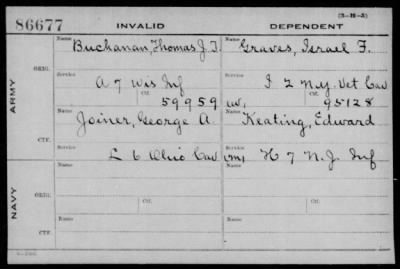 (3-H-3)
86677 INVALID DEPENDENT
Name Buchanan, Thomas J. T. Name Graves, Israel F.
ORIG.
Service Service
A 7 Wis Inf I 2 N.Y. Vet Cav
Ctf. 59959 Ctf. 95128
ARMY
Name Joiner, George A. Name Keating, Edward
Service Service
CTF.
L 6 Ohio Cav H 7 N.J. Inf
Name Name
ORIG.
Service Ctf. Service Ctf.
NAVY
Name Name
CTF.
Service Service